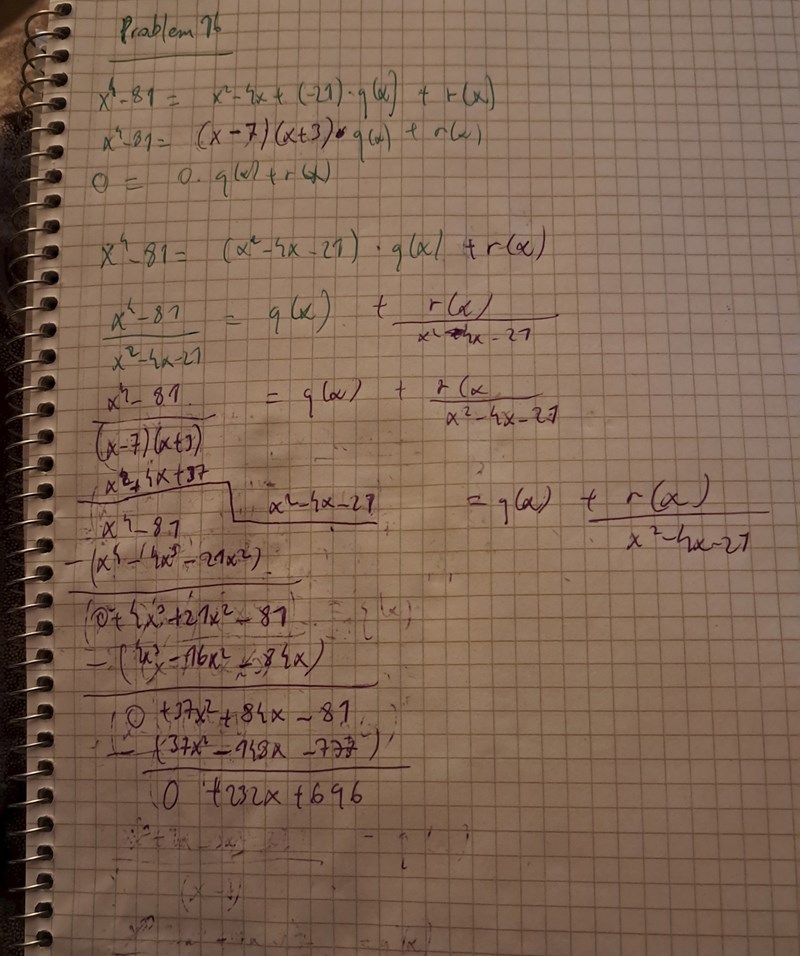 Problem 16
x⁴-81 = x²-4x+(-21)·q(x) + r(x)
x⁴-81= (x-7)(x+3)· q(x) + r(x)
0 = 0. q(x)+r(x)
x⁴-81= (x²-4x-21)·q(x) +r(x)
x⁴-81 = q(x) + r(x)
x²-4x-21 x²-4x-21
x⁴-81 = q(x) + r(x
(x-7)(x+3) x²-4x-21
x²+4x+37
x⁴-81 x²-4x-21 =q(x) + r(x)
x²-4x-21
-(x⁴-4x³-21x²)
0+4x³+21x²-81 = q(x)
-(4x³-16x²-84x)
0 +37x²+84x-81
-(37x²-148x-777)
0 +232x+696